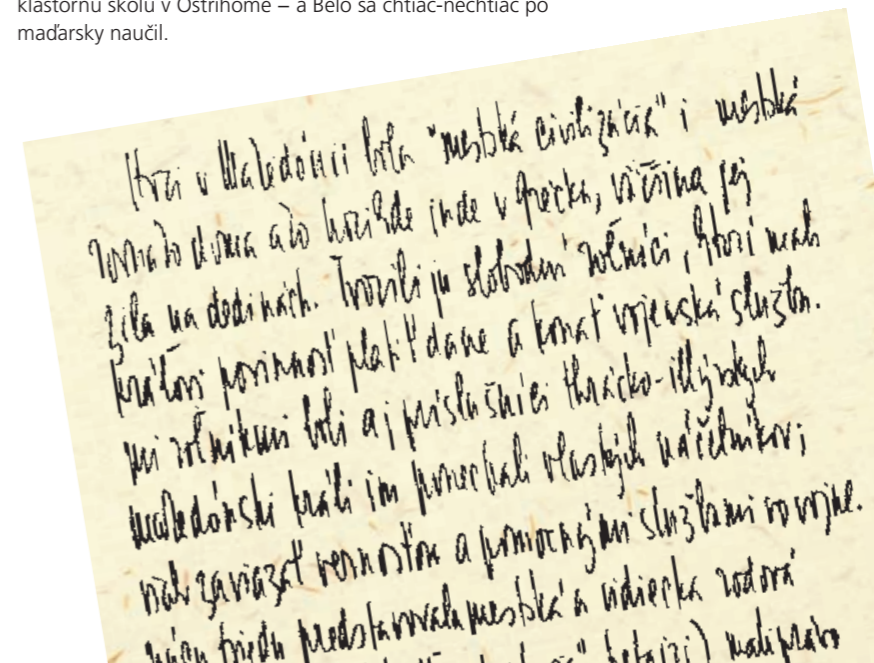 kláštornú školu v Ostrihome – a Belo sa chtiac-nechtiac po
maďarsky naučil.
v Makedónii bola "mestská civilizácia" i mestská
doma ako hocikde inde v Grécku, väčšina jej
žila na dedinách. Tvorili ju slobodní roľníci, ktorí mali
kráľovi povinnosť platiť dane a konať vojenskú službu.
mi roľníkmi boli aj príslušníci thrácko-illýrskych
makedónski králi im ponechali vlastných náčelníkov;
zaviazať vernosťou a pomocnými službami vo vojne.
triedu predstavovala mestská a vidiecka rodová
hetairi) mali právo